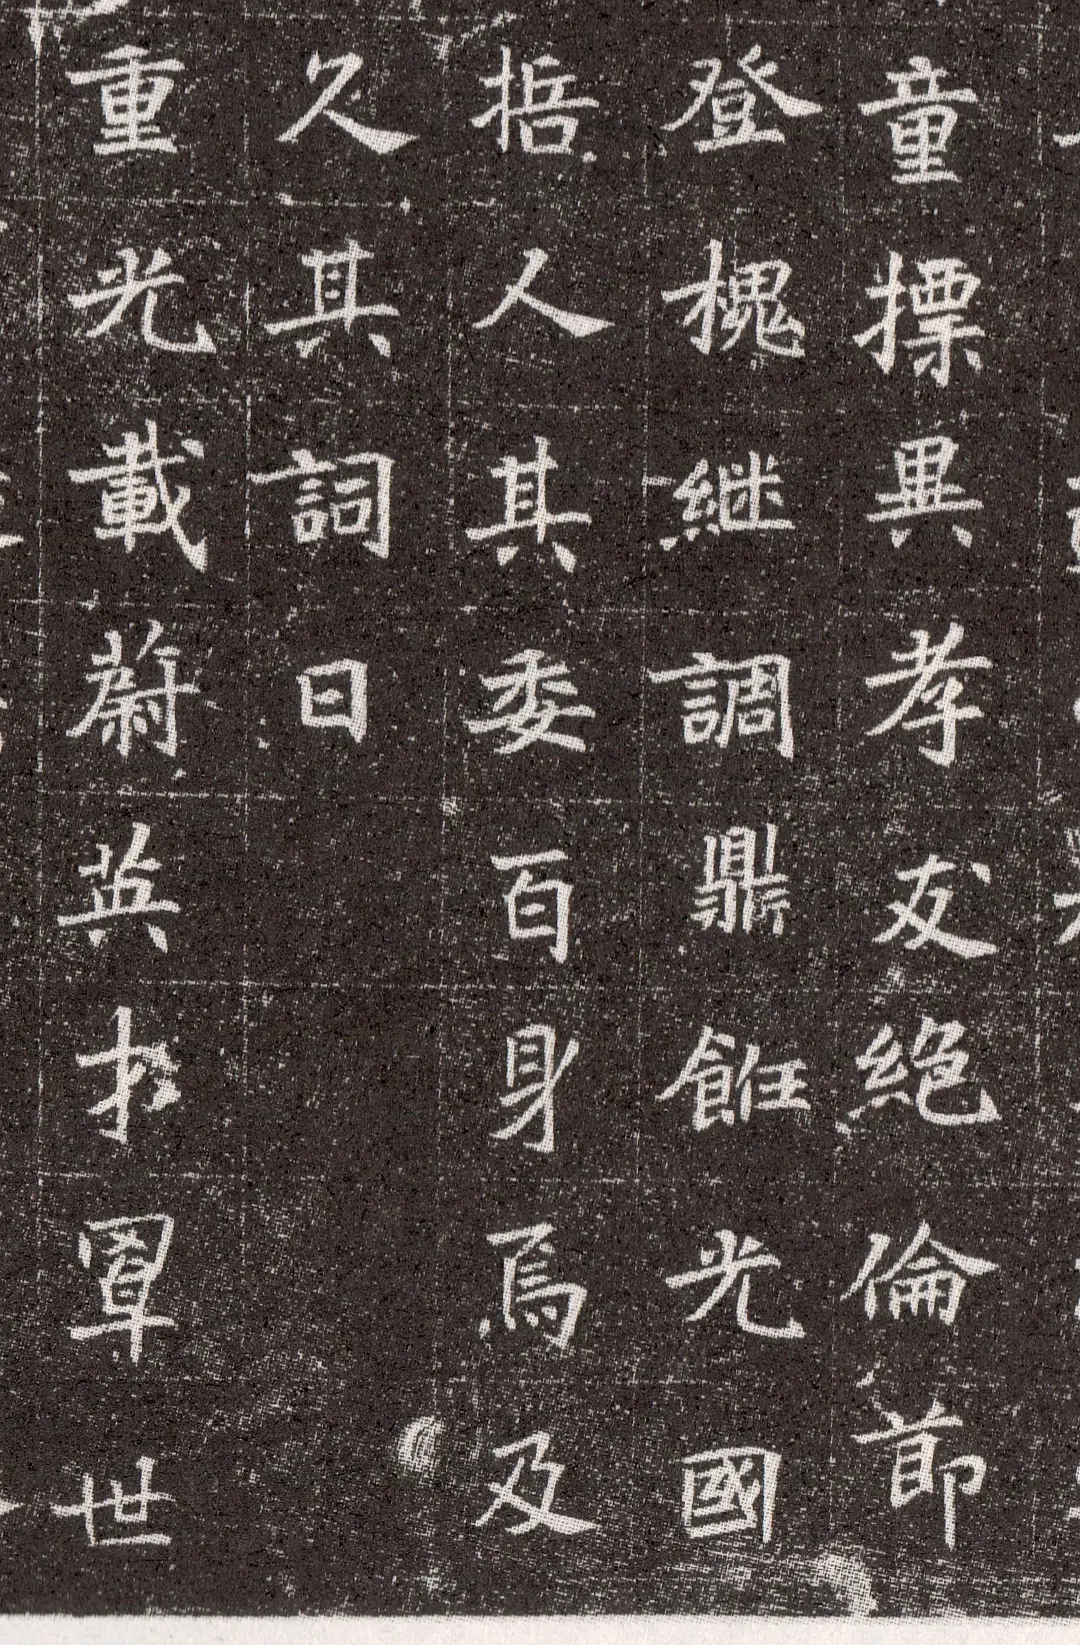 童摽異孝友絶倫節
登槐継調鼎飪光國
哲人其委百身焉及
久其詞曰
重光載蔚英才罩世